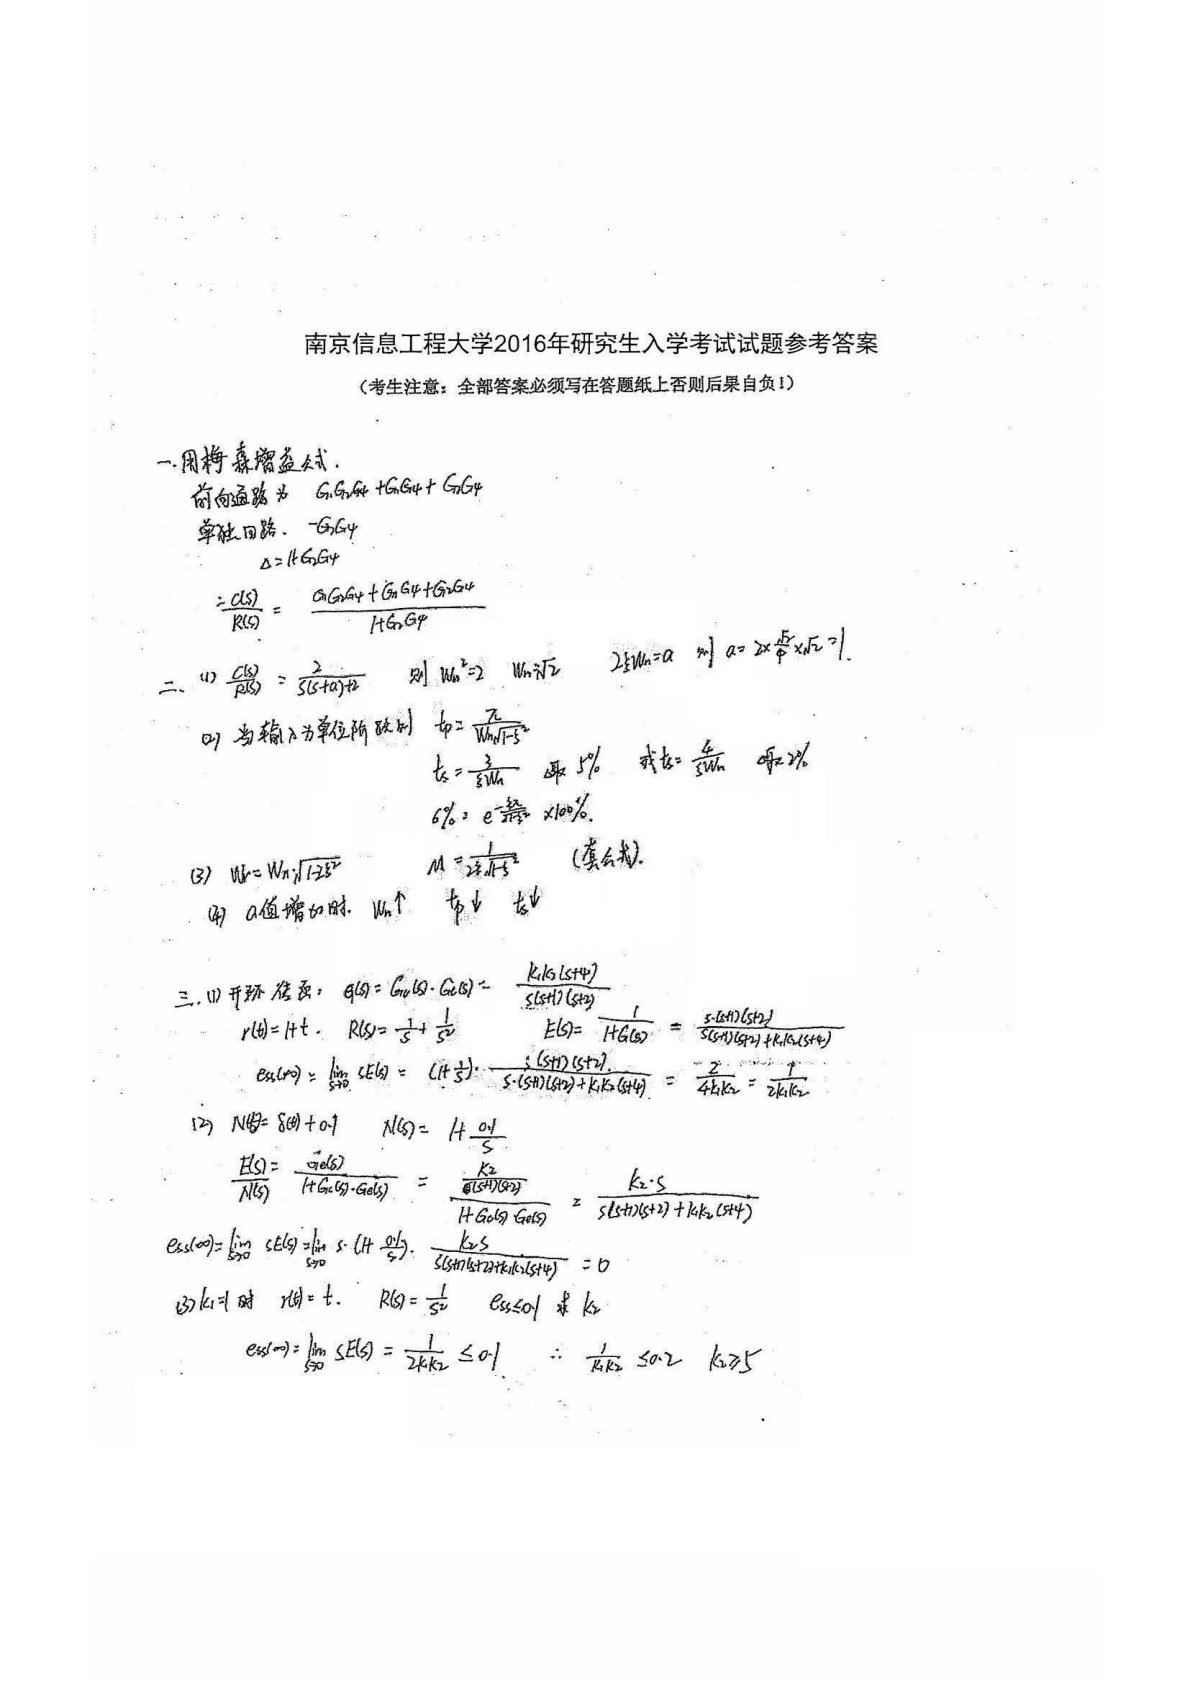 南京信息工程大学2016年研究生入学考试试题参考答案
（考生注意：全部答案必须写在答题纸上否则后果自负！）
一.用梅森增益公式.
前向通路为 G₁G₂G₄+G₃G₄+G₂G₄
单独回路. -G₂G₄
Δ=1+G₂G₄
∴ C(s)/R(s) = (G₁G₂G₄+G₃G₄+G₂G₄)/(1+G₂G₄)
二、(1) C(s)/R(s) = 2/(s(s+a)+2) 则 Wn²=2 Wn=√2 2ξWn=a 则 a=2×√2/4×√2=1.
(2) 当输入为单位阶跃时 tp=π/(Wn√1-ξ²)
ts=3/(ξWn) 取5% 或ts=4/(ξWn) 取2%
σ%=e ×100%.
(3) Wr=Wn√1-2ξ² M=1/(2ξ√1-ξ²) (套公式).
(4) a值增加时. Wn↑ tp↓ ts↓
三.(1) 开环传函: G(s)= = K₁K₂(s+4)/(s(s+1)(s+2))
r(t)=1+t. R(s)=1/s+1/s² E(s)=1/(1+G(s)) = s(s+1)(s+2)/(s(s+1)(s+2)+K₁K₂(s+4))
ess(∞)=lim s→0 sE(s) = (1+1/s)·s(s+1)(s+2)/(s·(s+1)(s+2)+K₁K₂(s+4)) = 2/4k₁k₂ = 1/2k₁k₂
(2) N(t)=δ(t)+0.1 N(s)=1+0.1/s
E(s)/N(s) = Go(s)/(1+Gc(s)·Go(s)) = = K₂·s/(s(s+1)(s+2)+K₁K₂(s+4))
ess(∞)=lim s→0 sE(s)=lim s→0 s·(1+0.1/s)·K₂s/(s(s+1)(s+2)+K₁K₂(s+4)) =0
(3) k₁=1时 r(t)=t. R(s)=1/s² ess≤0.1 求k₂
ess(∞)=lim s→0 sE(s) = 1/2k₁k₂ ≤0.1 ∴ 1/k₁k₂ ≤0.2 k₂≥5